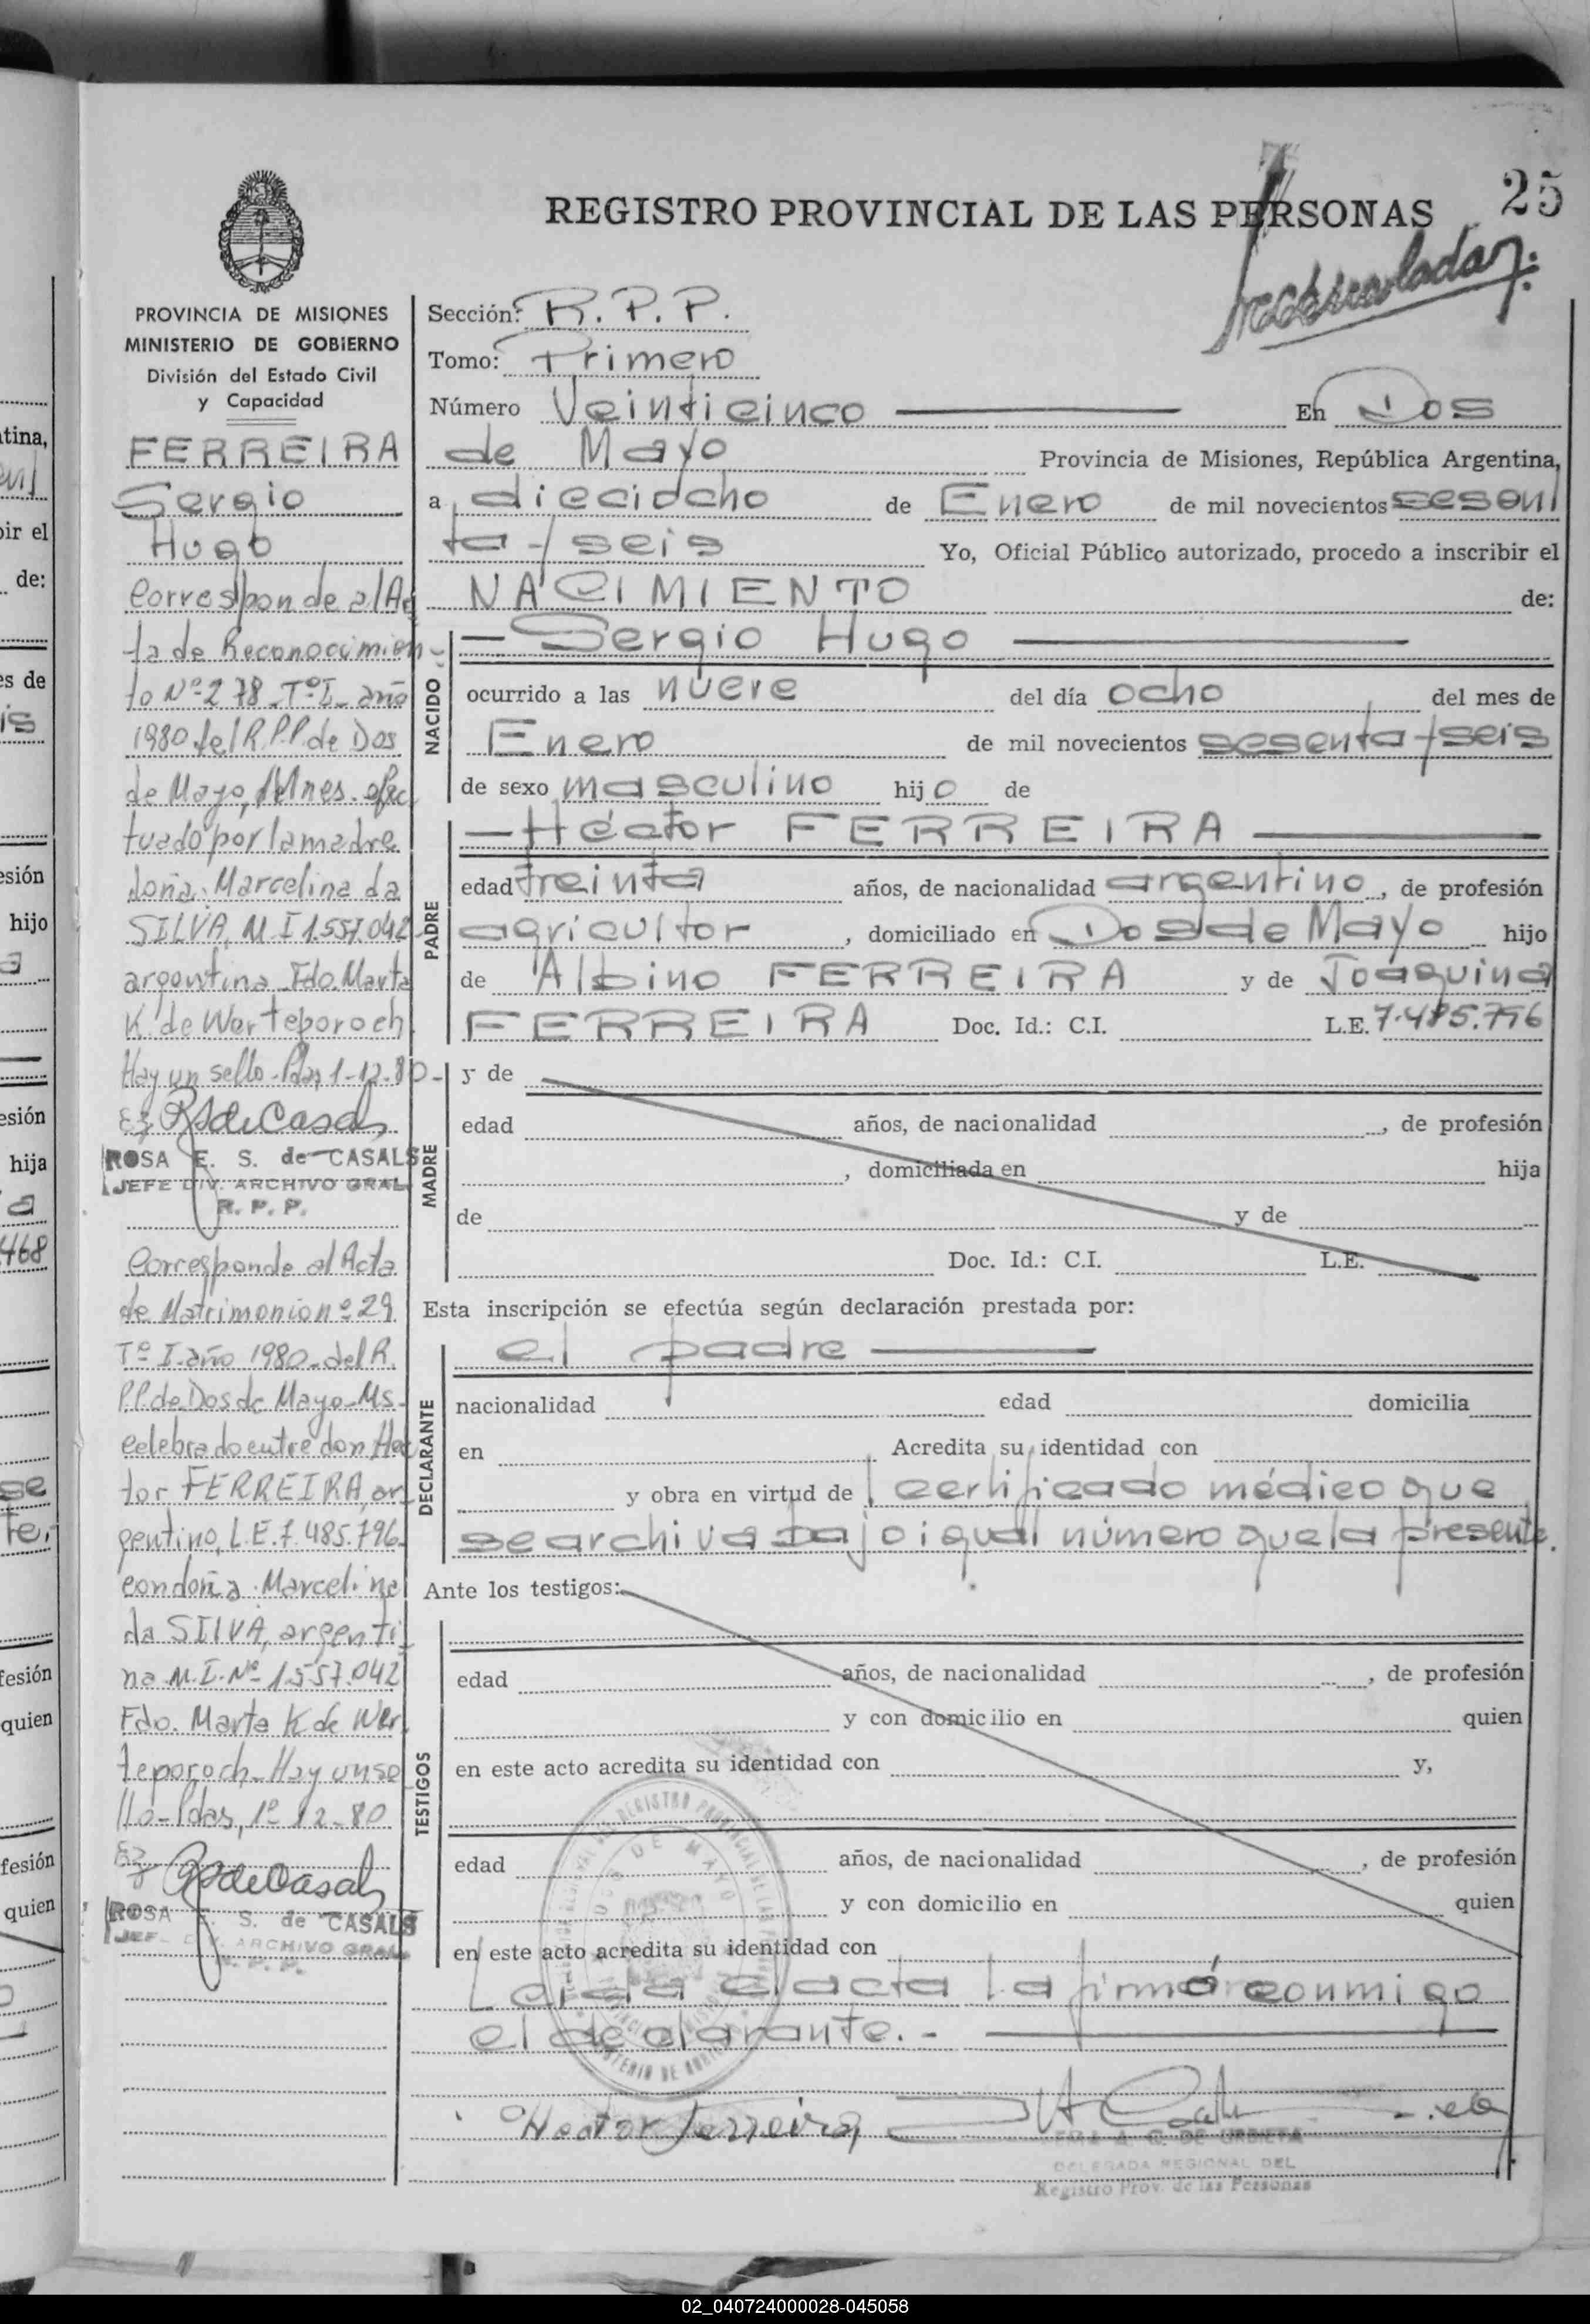 25
REGISTRO PROVINCIAL DE LAS PERSONAS
PROVINCIA DE MISIONES
MINISTERIO DE GOBIERNO
División del Estado Civil
y Capacidad
FERREIRA
Sergio
Hugo
Corresponde al Ac
ta de Reconocimien-
to Nº 278 Tº I año
1980 del R.P.P. de Dos
de Mayo, Mnes. efec
tuado por la madre
doña: Marcelina da
SILVA, M I 1.557.042
argentina Fdo. Marta
K. de Werteporoch
Hay un sello-Pdas, 1-12-80-
ROSA E. S. de CASALS
JEFE DIV. ARCHIVO GRAL.
R. P. P.
Corresponde al Acta
de Matrimonio nº 29
Tº I año 1980 del R.
P.P. de Dos de Mayo-Ms-
celebrado entre don Hec
tor FERREIRA, ar-
gentino, L.E. 7.485.796
con doña Marcelina
da SILVA, argenti-
na M.I. Nº 1557.042
Fdo. Marta K de Wer
teporoch-Hay un se
llo-Pdas, 1º 12-80
ROSA E. S. de CASALS
JEFE DIV. ARCHIVO GRAL.
R. P. P.
Sección: R. P. P.
Tomo: Primero
Número Veinticinco En Dos
de Mayo Provincia de Misiones, República Argentina,
a dieciocho de Enero de mil novecientos sesen
ta y seis Yo, Oficial Público autorizado, procedo a inscribir el
NACIMIENTO de:
NACIDO
Sergio Hugo
ocurrido a las nueve del día ocho del mes de
Enero de mil novecientos sesenta y seis
de sexo masculino hijo de
PADRE
Héctor FERREIRA
edad treinta años, de nacionalidad argentino, de profesión
agricultor, domiciliado en Dos de Mayo hijo
de Albino FERREIRA y de Joaquina
FERREIRA Doc. Id.: C.I. L.E. 7.485.796
MADRE
y de
edad años, de nacionalidad , de profesión
, domiciliada en hija
de y de
Doc. Id.: C.I. L.E.
Esta inscripción se efectúa según declaración prestada por:
DECLARANTE
el padre
nacionalidad edad domicilia
en Acredita su identidad con
y obra en virtud de certificado médico que
se archiva bajo igual número que la presente.
Ante los testigos:
TESTIGOS
edad años, de nacionalidad , de profesión
y con domicilio en quien
en este acto acredita su identidad con y,
edad años, de nacionalidad , de profesión
y con domicilio en quien
en este acto acredita su identidad con
Leída el acta la firmó conmigo
el declarante.-
Hector Ferreira
A. C. DE URBIETA
DELEGADA REGIONAL DEL
Registro Prov. de las Personas
02_040724000028-045058